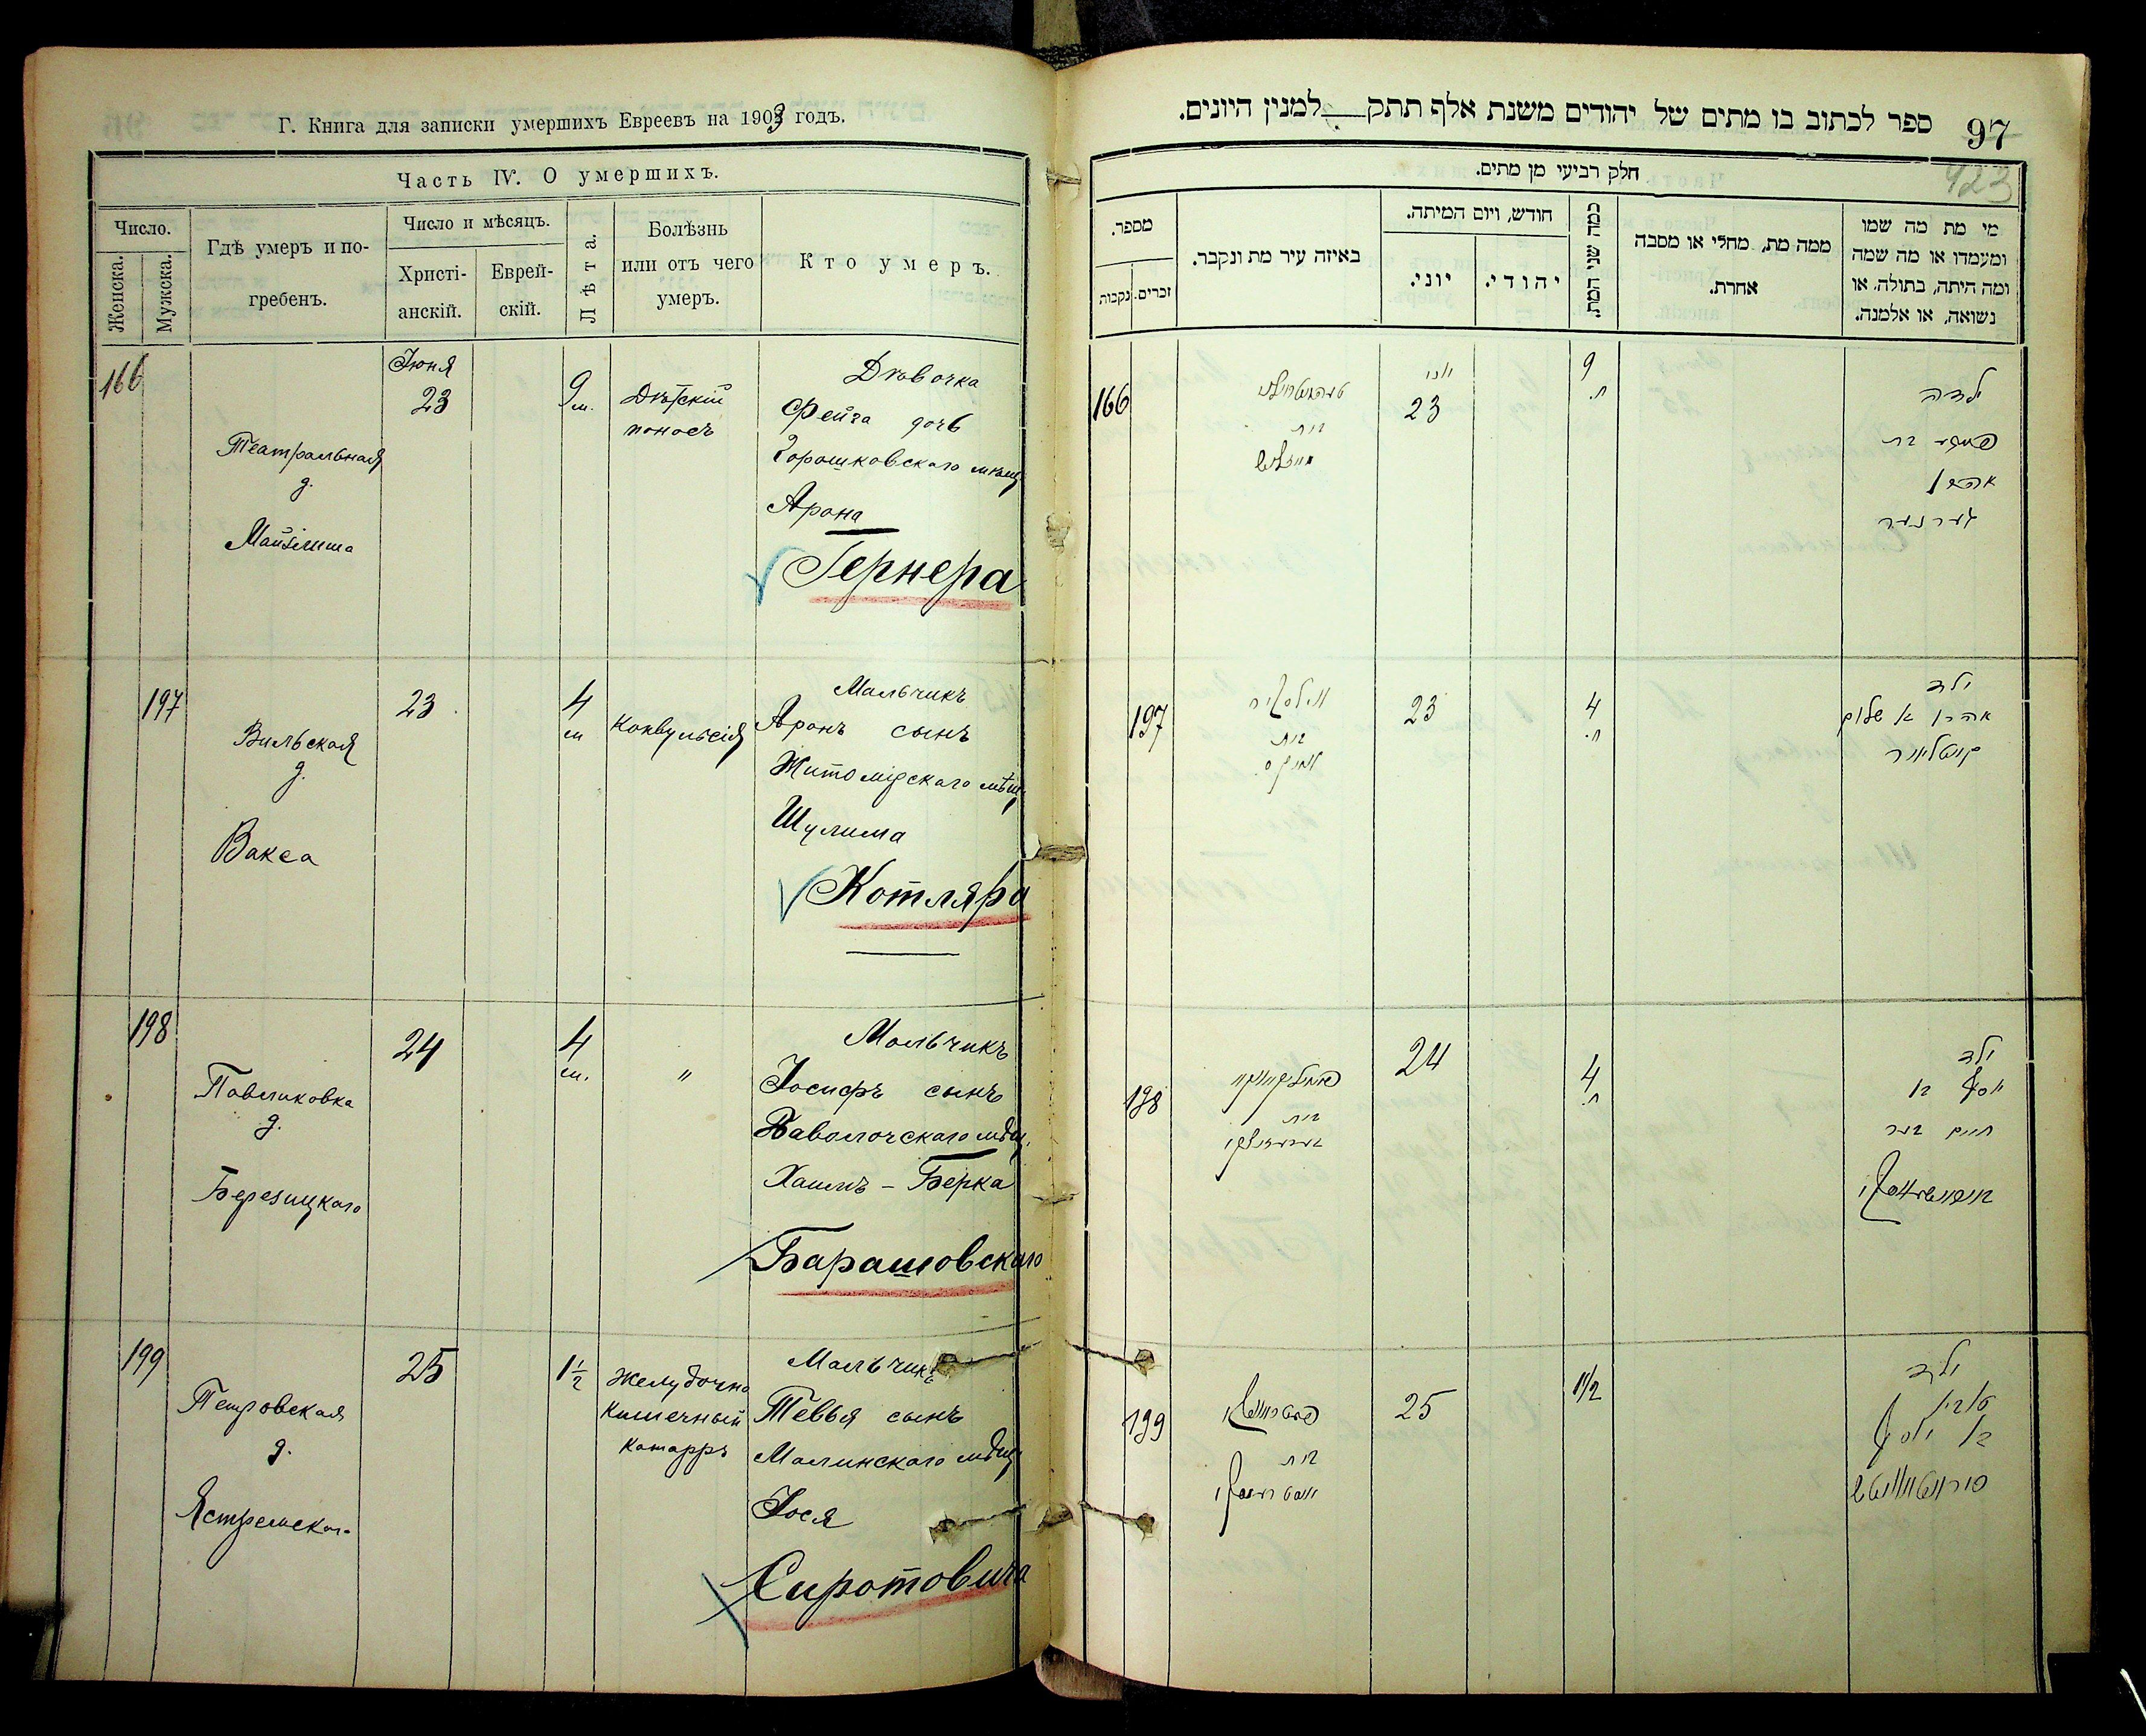 Г. Книга для записки умершихъ Евреевъ на 1903 годъ.
Часть IV. О умершихъ.
Число.
Женска.
Мужска.
Гдѣ умеръ и по-
гребенъ.
Число и мѣсяцъ.
Христі-
анскій.
Еврей-
скій.
Лѣта.
Болѣзнь
или отъ чего
умеръ.
Кто умеръ.
166
Театральная
д.
Іюня
23
9 м.
Дѣтскій
поносъ
Дѣвочка
Фейга дочь
Горошковского мѣщ
Арона
Гернера
197
Вильская
д.
Вакса
23
4
м
Конвульсія
Мальчикъ
Аронъ сынъ
Житомірскаго мѣщ
Шулима
Котляра
198
Павликовка
д.
Березицкаго
24
4
м.
"
Мальчикъ
Іосифъ сынъ
Паволочскаго мѣщ.
Хаимъ - Берка
Барашовскаго
199
Петровская
д.
25
1 1/2
Желудочно
кишечный
катарръ
Мальчикъ
Тевья сынъ
Малинскаго мѣщ
Іося
Сиротовича
ספר לכתוב בו מתים של יהודים משנת אלף תתק למנין היונים.
97
923
חלק רביעי מן מתים.
מספר.
נקבות
זכרים.
באיזה עיר מת ונקבר.
חודש, ויום המיתה.
יוני.
יהודי.
כמה שני המת.
ממה מת, מחלי או מסבה
אחרת.
מי מת מה שמו
ומעמדו או מה שמה
ומה היתה, בתולה, או
נשואה, או אלמנה.
166
בית
יוני
23
9
ח.
ילדה
פייגע בת
אהרן
גערנער
197
בית
וואקס
23
4
ח.
ילד
אהרן בן שלום
קוטליאר
198
בית
24
4
ח.
ילד
יוסף בן
חיים בער
באראשאווסקי
199
בית
25
1 1/2
ילד
טביי
בן יוסף
סיראטאוויטש